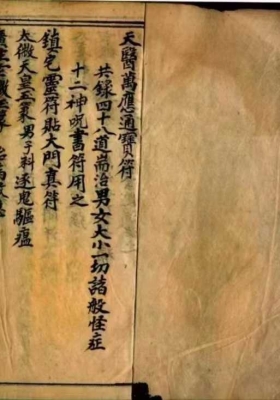 天醫萬應通寶符
共録四十八道耑治男女大小一切諸般怪症
十二神咒書符用之
鎮宅靈符貼大門真符
太微天皇男子科逐鬼驅瘟